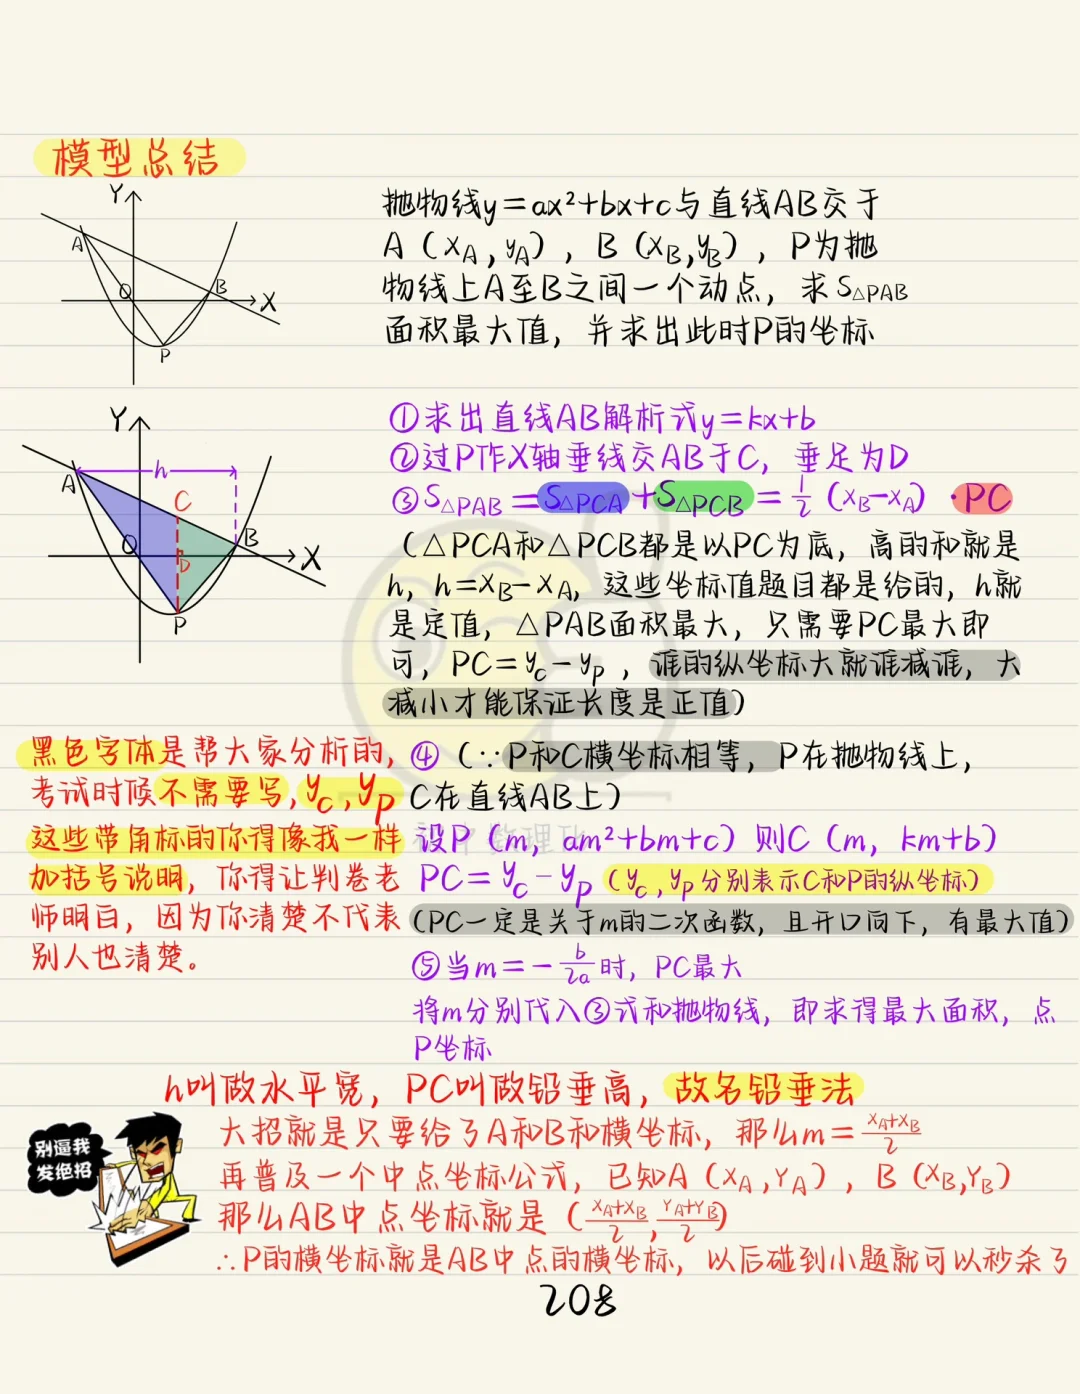 模型总结
Y
A
O
B
X
P
抛物线y=ax²+bx+c与直线AB交于
A（xA,yA），B（xB,yB），P为抛
物线上A至B之间一个动点，求S△PAB
面积最大值，并求出此时P的坐标
Y
h
A
C
O
D
B
X
P
①求出直线AB解析式y=kx+b
②过P作X轴垂线交AB于C，垂足为D
③S△PAB=S△PCA+S△PCB=1/2（xB-xA）·PC
（△PCA和△PCB都是以PC为底，高的和就是
h，h=xB-xA，这些坐标值题目都是给的，h就
是定值，△PAB面积最大，只需要PC最大即
可，PC=yc-yp，谁的纵坐标大就谁减谁，大
减小才能保证长度是正值）
黑色字体是帮大家分析的，
考试时候不需要写，yc，yp
这些带角标的你得像我一样
加括号说明，你得让判卷老
师明白，因为你清楚不代表
别人也清楚。
④（∵P和C横坐标相等，P在抛物线上，
C在直线AB上）
设P（m，am²+bm+c）则C（m，km+b）
PC=yc-yp（yc,yp分别表示C和P的纵坐标）
（PC一定是关于m的二次函数，且开口向下，有最大值）
⑤当m=-b/2a时，PC最大
将m分别代入③式和抛物线，即求得最大面积，点
P坐标
h叫做水平宽，PC叫做铅垂高，故名铅垂法
别逼我
发绝招
大招就是只要给了A和B和横坐标，那么m=xA+xB/2
再普及一个中点坐标公式，已知A（xA,YA），B（xB,YB）
那么AB中点坐标就是（xA+xB/2,YA+YB/2）
∴P的横坐标就是AB中点的横坐标，以后碰到小题就可以秒杀了
208